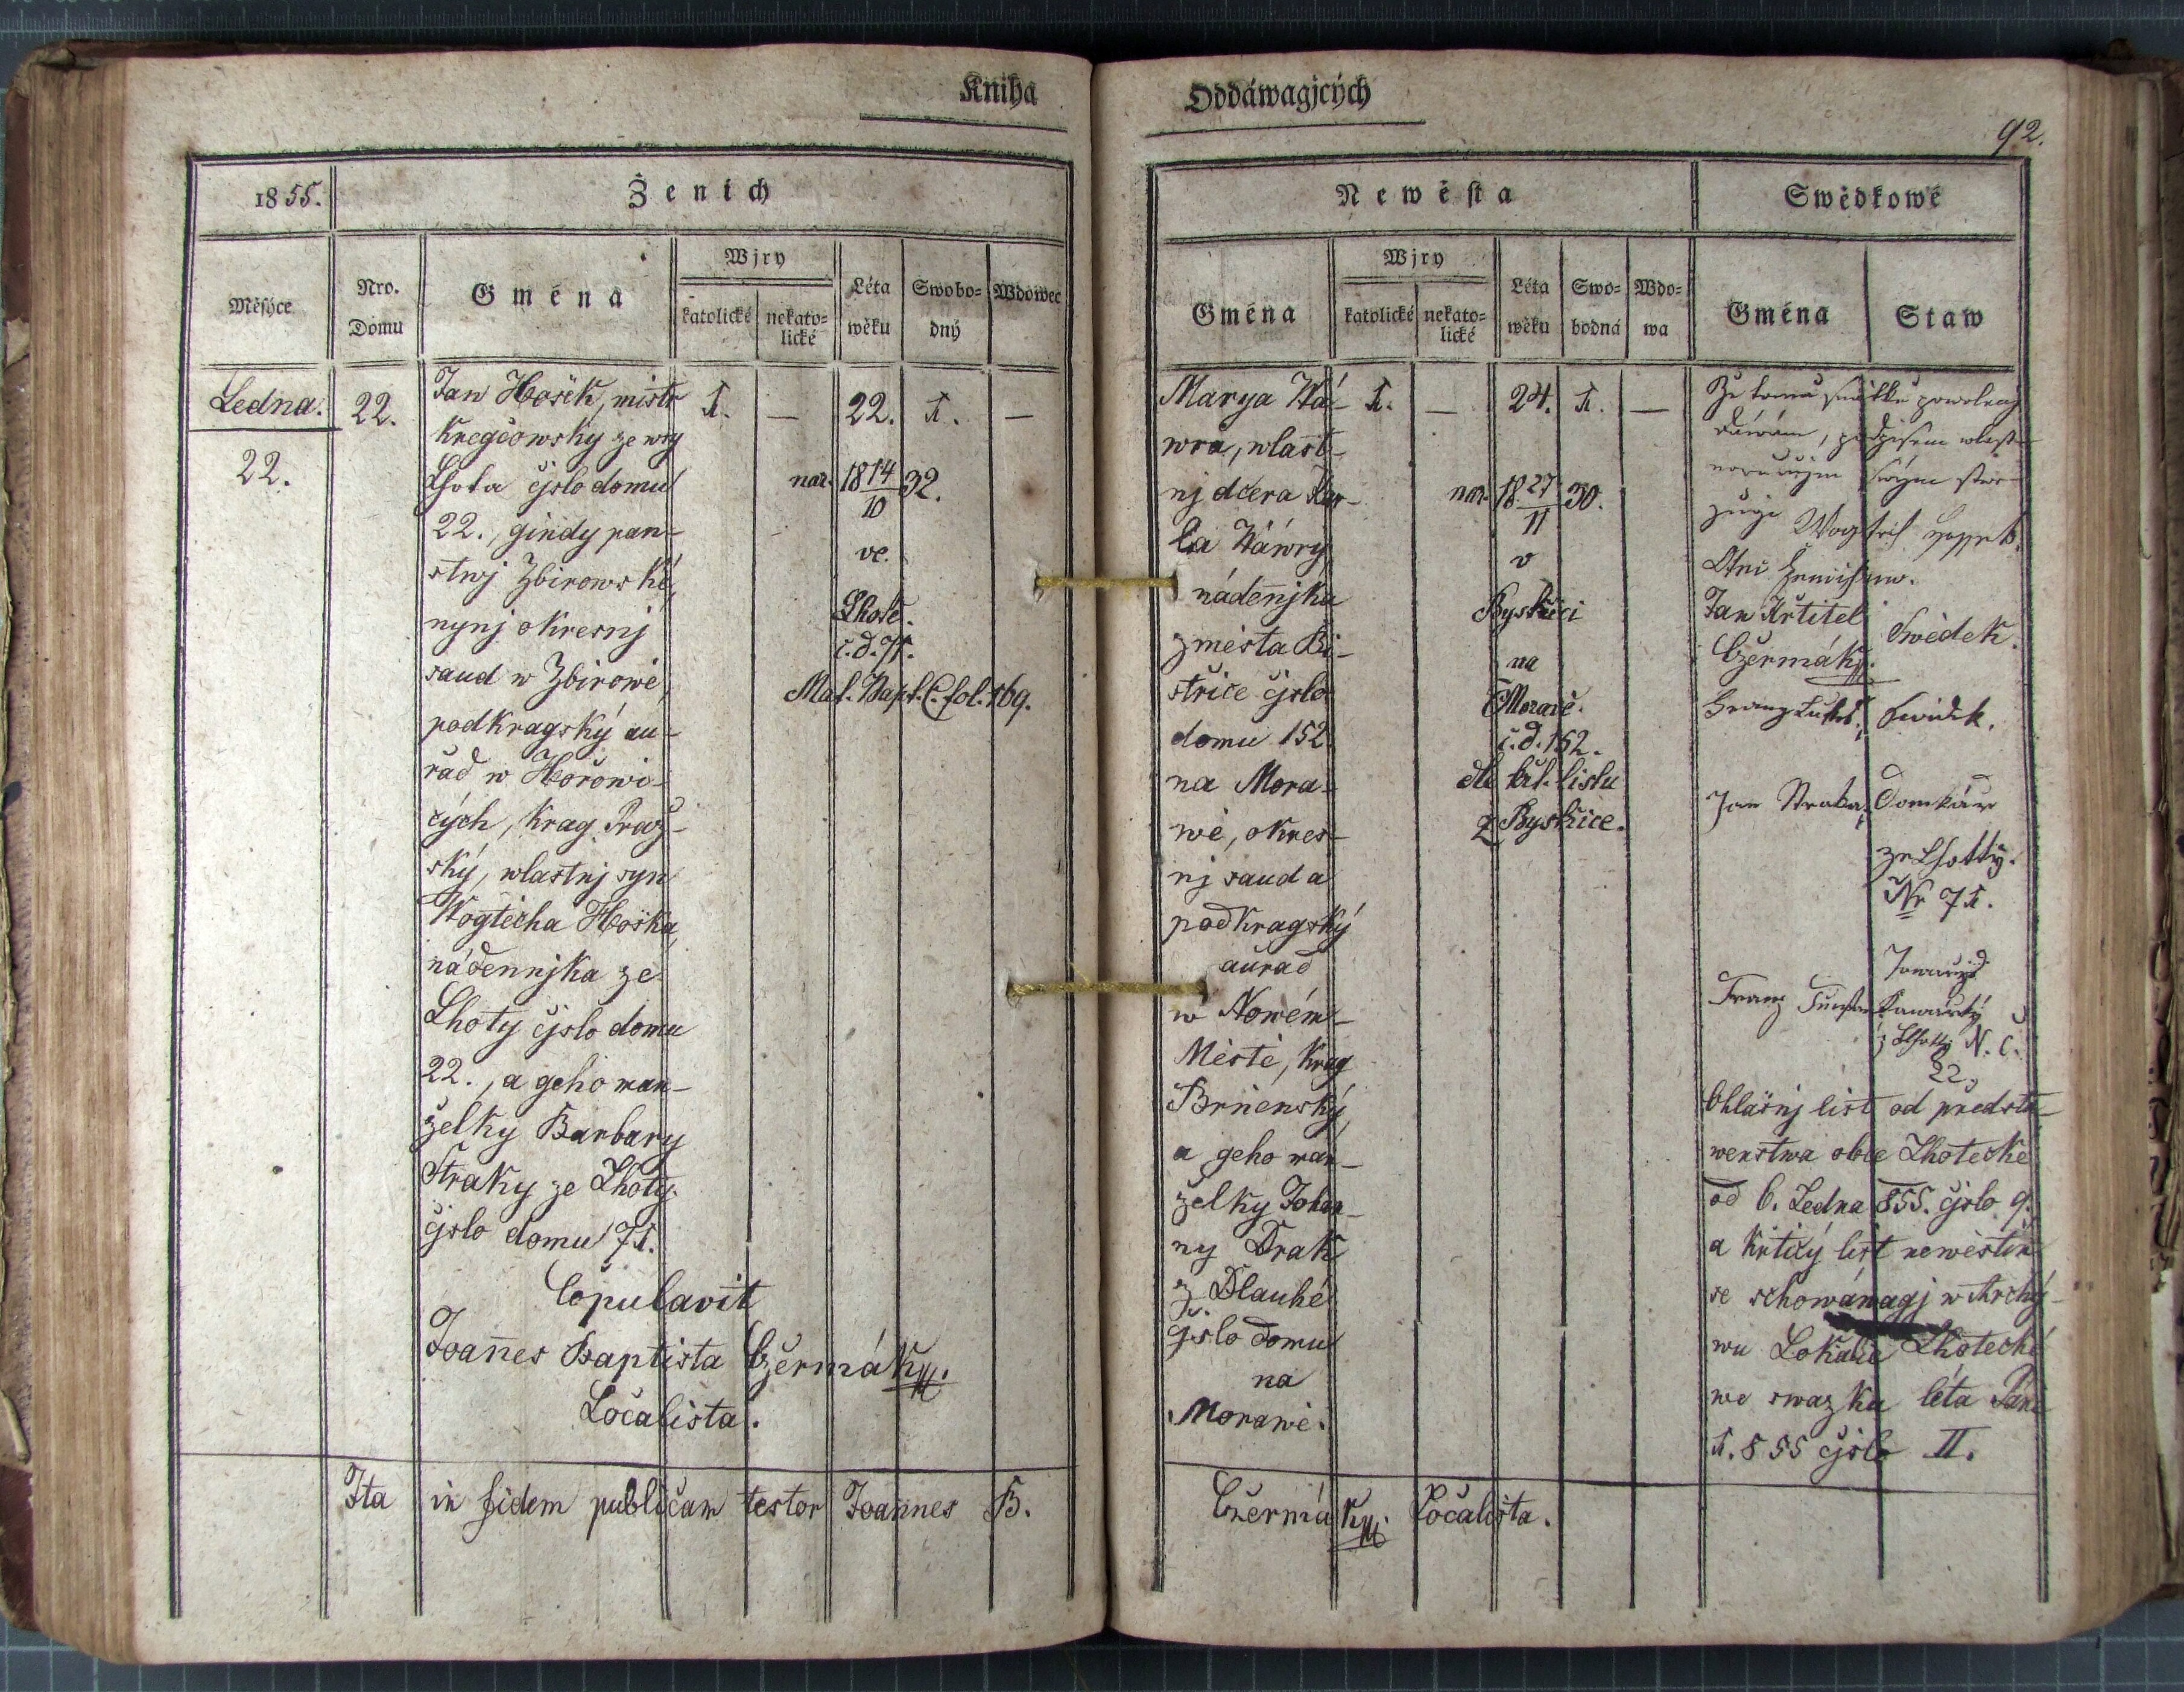 Kniha
1855.
Ženich
Měsýce
Nro.
Domu
Gména
Wjry
katolické
nekato=
lické
Léta
wěku
Swobo=
dný
Wdowec
Ledna.
22.
22.
Jan Hošek, mistr
kregčowský ze wsy
Lhota čjslo domu
22., gindy pan-
stwj Zbirowské,
nynj okresnj
saud w Zbirowě,
podkragský au-
řad w Hořowi-
cých, krag Praž-
ský, wlastnj syn
Wogtěcha Hoška,
nádennjka ze
Lhoty čjslo domu
22., a geho man-
želky Barbary
Straky ze Lhoty
čjslo domu 71.
1.
—
22.
1.
—
nar. 18 14/10 32.
ve
Lhotě.
č. d. 71.
Mat. Bapt. C. fol. 169.
Copulavit
Joañes Baptista Czermák
Localista.
Ita in fidem publicam testor Joannes B.
Oddáwagjcých
92.
Newěsta
Swědkowé
Gména
Wjry
katolické
nekato=
lické
Léta
wěku
Swo=
bodná
Wdo=
wa
Gména
Staw
Marya Wá-
wra, wlast-
nj dcera Kar-
la Wáwry,
nádenjka
z města Bi-
střice čjslo
domu 152.
na Mora-
wě, okres-
nj saud a
podkragský
auřad
w Nowém-
Městě, krag
Brněnský,
a geho man-
želky Johan-
ny Drak
z Dlauhé
čjslo domu
na
Morawě.
1.
—
24.
1.
—
nar. 18 27/11 30.
v
Bystřici
na
Moravě.
č. d. 152.
dle křt. listu
z Bystřice.
Ze
Otec
Jan Křtitel
Czermák
Swědek.
Swědek.
Jan Straka,
Domkář
ze Lhotty.
Nr 71.
Franz
z Lhotty N. C.
22.
Ohlašnj list od předsta-
wenstwa obce Lhotecké
od 6. Ledna 855. čjslo 9.
a křticý list newěstin
se schowáwagj w Archý-
wu Lokalie Lhotecké
we swazku léta Páně
1.855 čjslo II.
Czermák Localista.